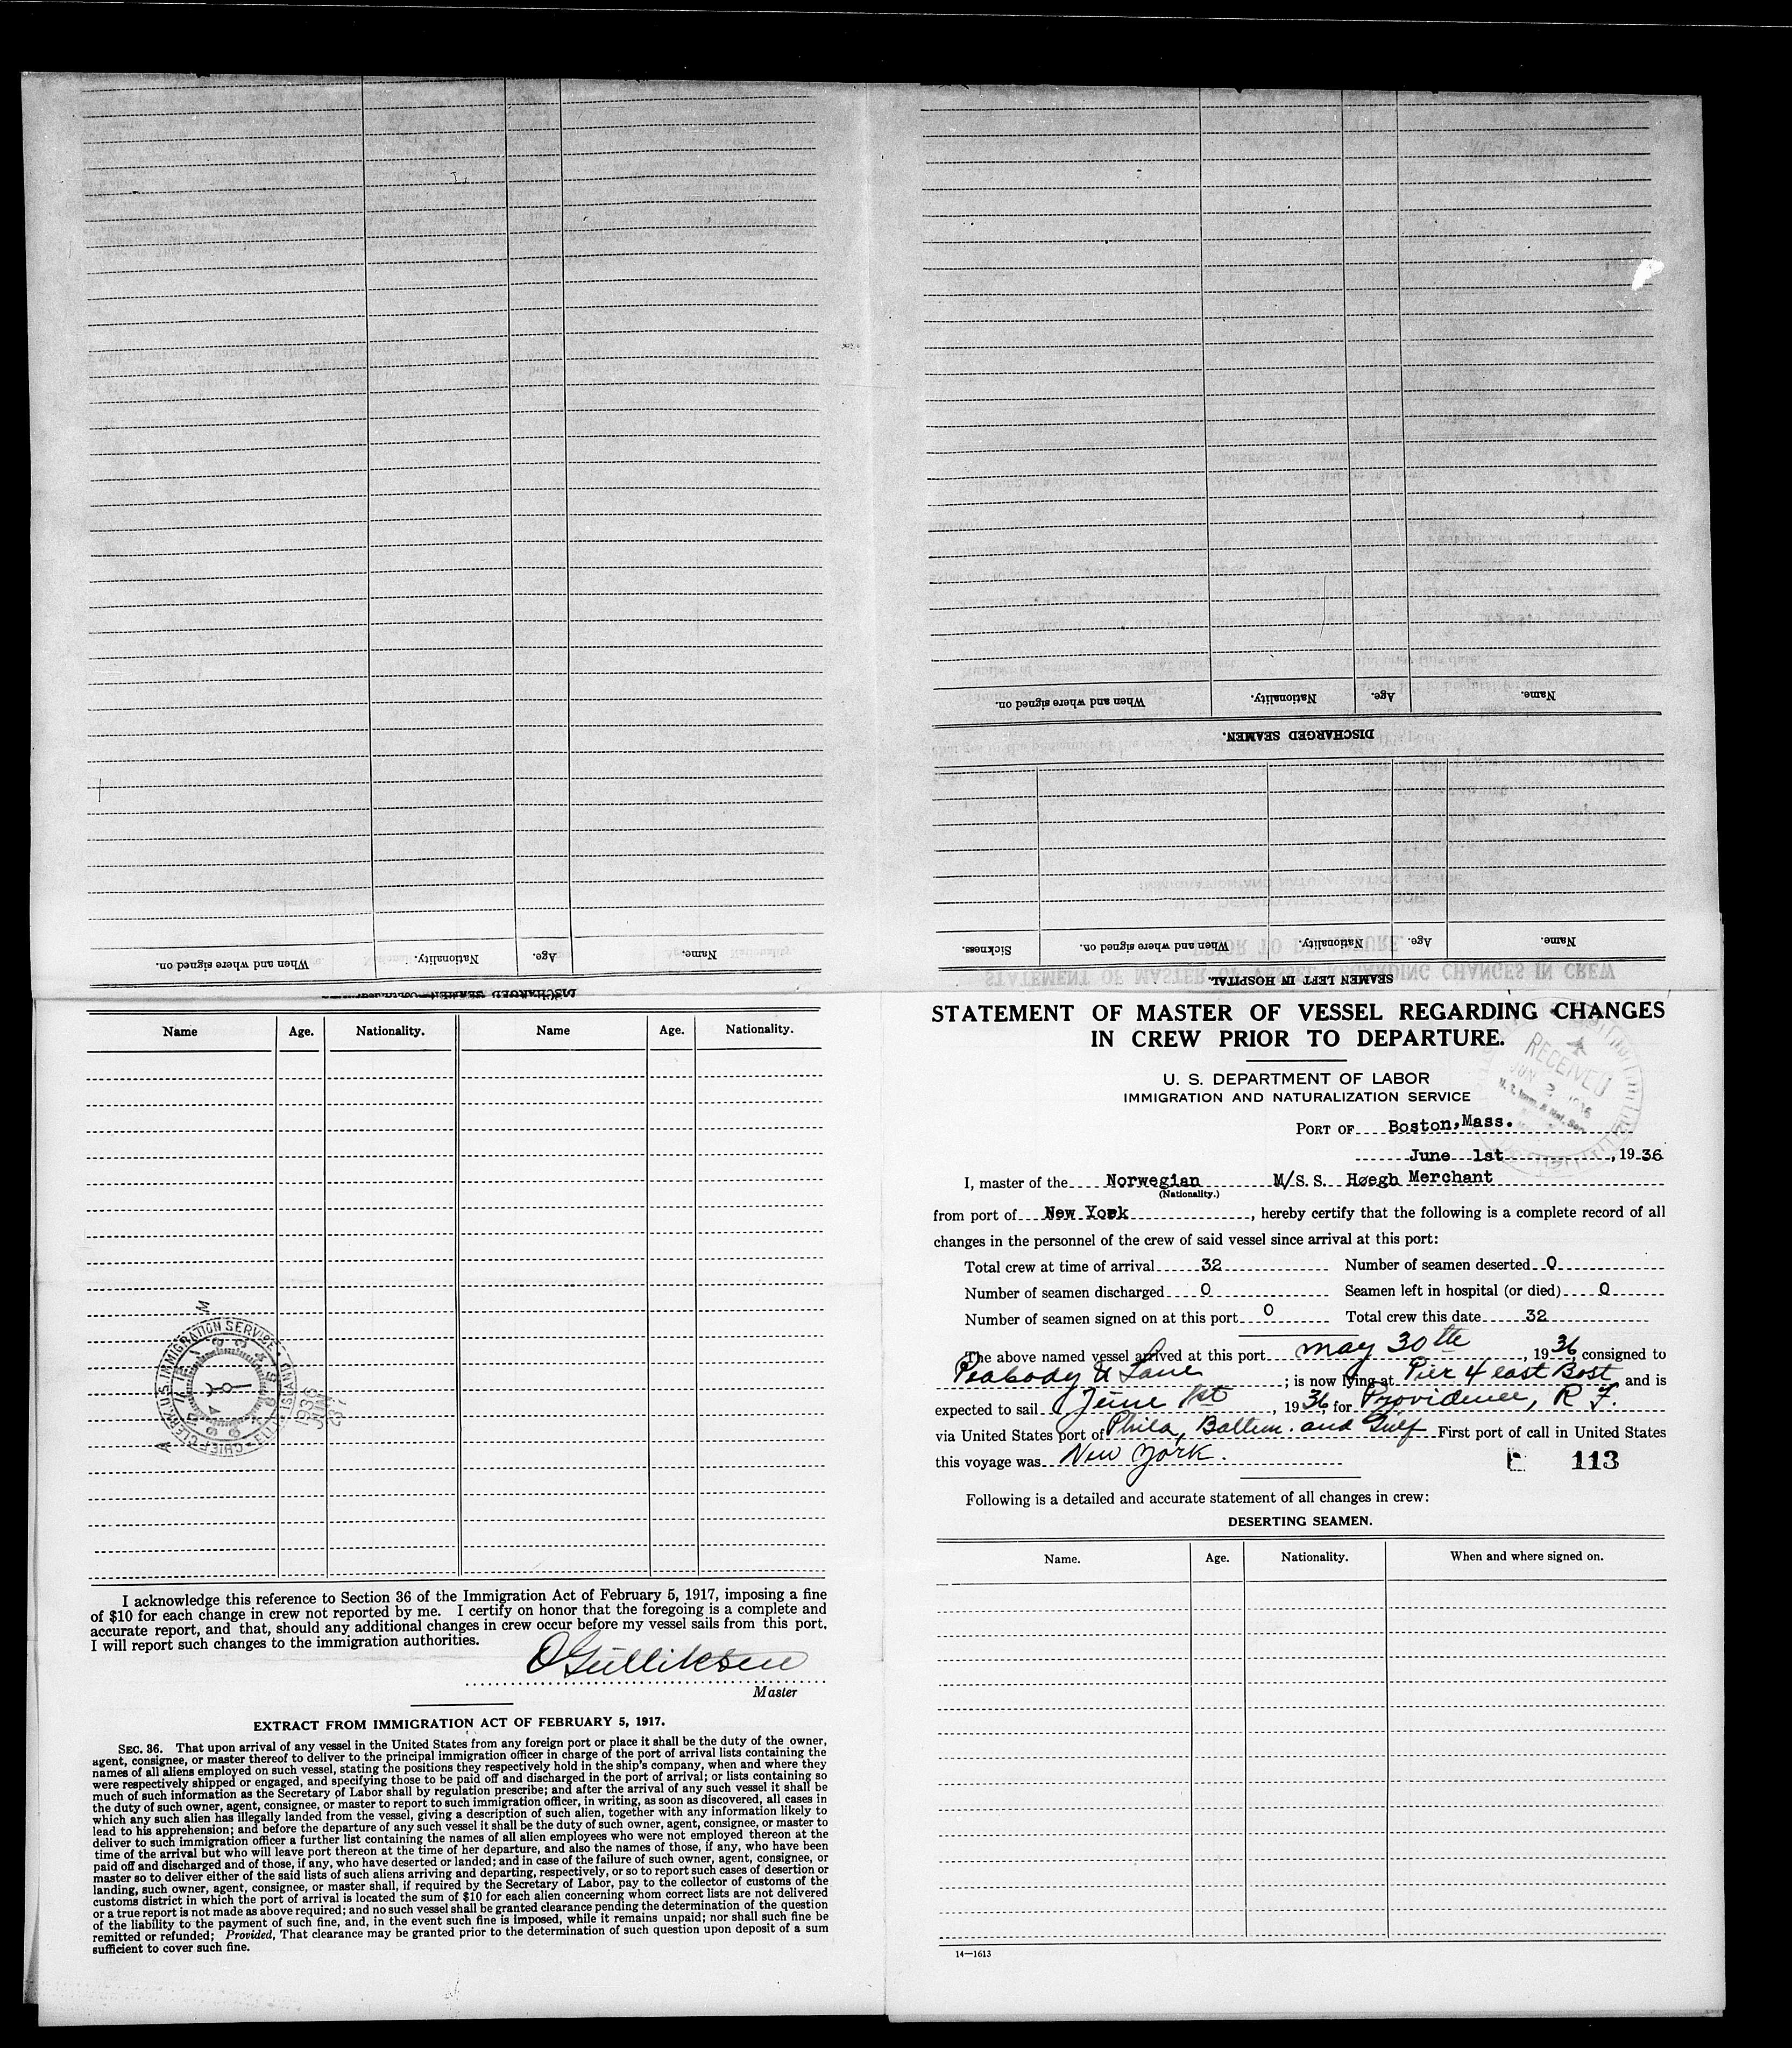 When and where signed on.
Nationality.
Age.
Name.
DISCHARGED SEAMEN—Continued.
Name.
Age.
Nationality.
When and where signed on.
DISCHARGED SEAMEN.
Name.
Age.
Nationality.
When and where signed on.
Sickness.
SEAMEN LEFT IN HOSPITAL.
Name Age. Nationality. Name Age. Nationality.
CHIEF CLERK, U.S. IMMIGRATION SERVICE ELLIS ISLAND
1936
I acknowledge this reference to Section 36 of the Immigration Act of February 5, 1917, imposing a fine
of $10 for each change in crew not reported by me. I certify on honor that the foregoing is a complete and
accurate report, and that, should any additional changes in crew occur before my vessel sails from this port,
I will report such changes to the immigration authorities.
O Gulliksen
Master
EXTRACT FROM IMMIGRATION ACT OF FEBRUARY 5, 1917.
SEC. 36. That upon arrival of any vessel in the United States from any foreign port or place it shall be the duty of the owner,
agent, consignee, or master thereof to deliver to the principal immigration officer in charge of the port of arrival lists containing the
names of all aliens employed on such vessel, stating the positions they respectively hold in the ship's company, when and where they
were respectively shipped or engaged, and specifying those to be paid off and discharged in the port of arrival; or lists containing so
much of such information as the Secretary of Labor shall by regulation prescribe; and after the arrival of any such vessel it shall be
the duty of such owner, agent, consignee, or master to report to such immigration officer, in writing, as soon as discovered, all cases in
which any such alien has illegally landed from the vessel, giving a description of such alien, together with any information likely to
lead to his apprehension; and before the departure of any such vessel it shall be the duty of such owner, agent, consignee, or master to
deliver to such immigration officer a further list containing the names of all alien employees who were not employed thereon at the
time of the arrival but who will leave port thereon at the time of her departure, and also the names of those, if any, who have been
paid off and discharged and of those, if any, who have deserted or landed; and in case of the failure of such owner, agent, consignee, or
master so to deliver either of the said lists of such aliens arriving and departing, respectively, or so to report such cases of desertion or
landing, such owner, agent, consignee, or master shall, if required by the Secretary of Labor, pay to the collector of customs of the
customs district in which the port of arrival is located the sum of $10 for each alien concerning whom correct lists are not delivered
or a true report is not made as above required; and no such vessel shall be granted clearance pending the determination of the question
of the liability to the payment of such fine, and, in the event such fine is imposed, while it remains unpaid; nor shall such fine be
remitted or refunded; Provided, That clearance may be granted prior to the determination of such question upon deposit of a sum
sufficient to cover such fine.
STATEMENT OF MASTER OF VESSEL REGARDING CHANGES
IN CREW PRIOR TO DEPARTURE.
U. S. DEPARTMENT OF LABOR
IMMIGRATION AND NATURALIZATION SERVICE
RECEIVED
PORT OF Boston, Mass.
June 1st, 1936
I, master of the Norwegian M/S. S. Høegh Merchant
(Nationality.)
from port of New York, hereby certify that the following is a complete record of all
changes in the personnel of the crew of said vessel since arrival at this port:
Total crew at time of arrival 32 Number of seamen deserted 0
Number of seamen discharged 0 Seamen left in hospital (or died) 0
Number of seamen signed on at this port 0 Total crew this date 32
The above named vessel arrived at this port May 30th, 1936, consigned to
Peabody & Lane; is now lying at Pier 4 east Bost and is
expected to sail June 1st, 1936 for Providence, R I.
via United States port of Phila, Baltim. and Gulf First port of call in United States
this voyage was New York.
113
Following is a detailed and accurate statement of all changes in crew:
DESERTING SEAMEN.
Name. Age. Nationality. When and where signed on.
14—1613